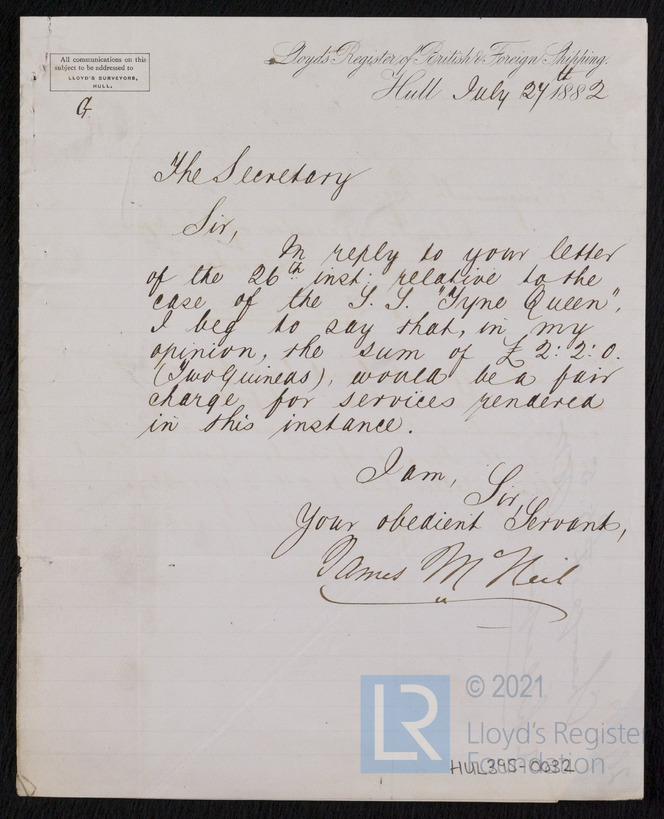 All communications on this
subject to be addressed to
LLOYD'S SURVEYORS,
HULL.
Lloyd's Register of British & Foreign Shipping.
Hull July 27th 1882
The Secretary
Sir,
In reply to your letter
of the 26th inst: relative to the
case of the S. S. "Tyne Queen",
I beg to say that, in my
opinion, the sum of £2:2:0.
(Two Guineas), would be a fair
charge for services rendered
in this instance.
I am, Sir,
Your obedient Servant,
James McNeil
LR
© 2021
Lloyd's Register
Foundation
HUL395-0032